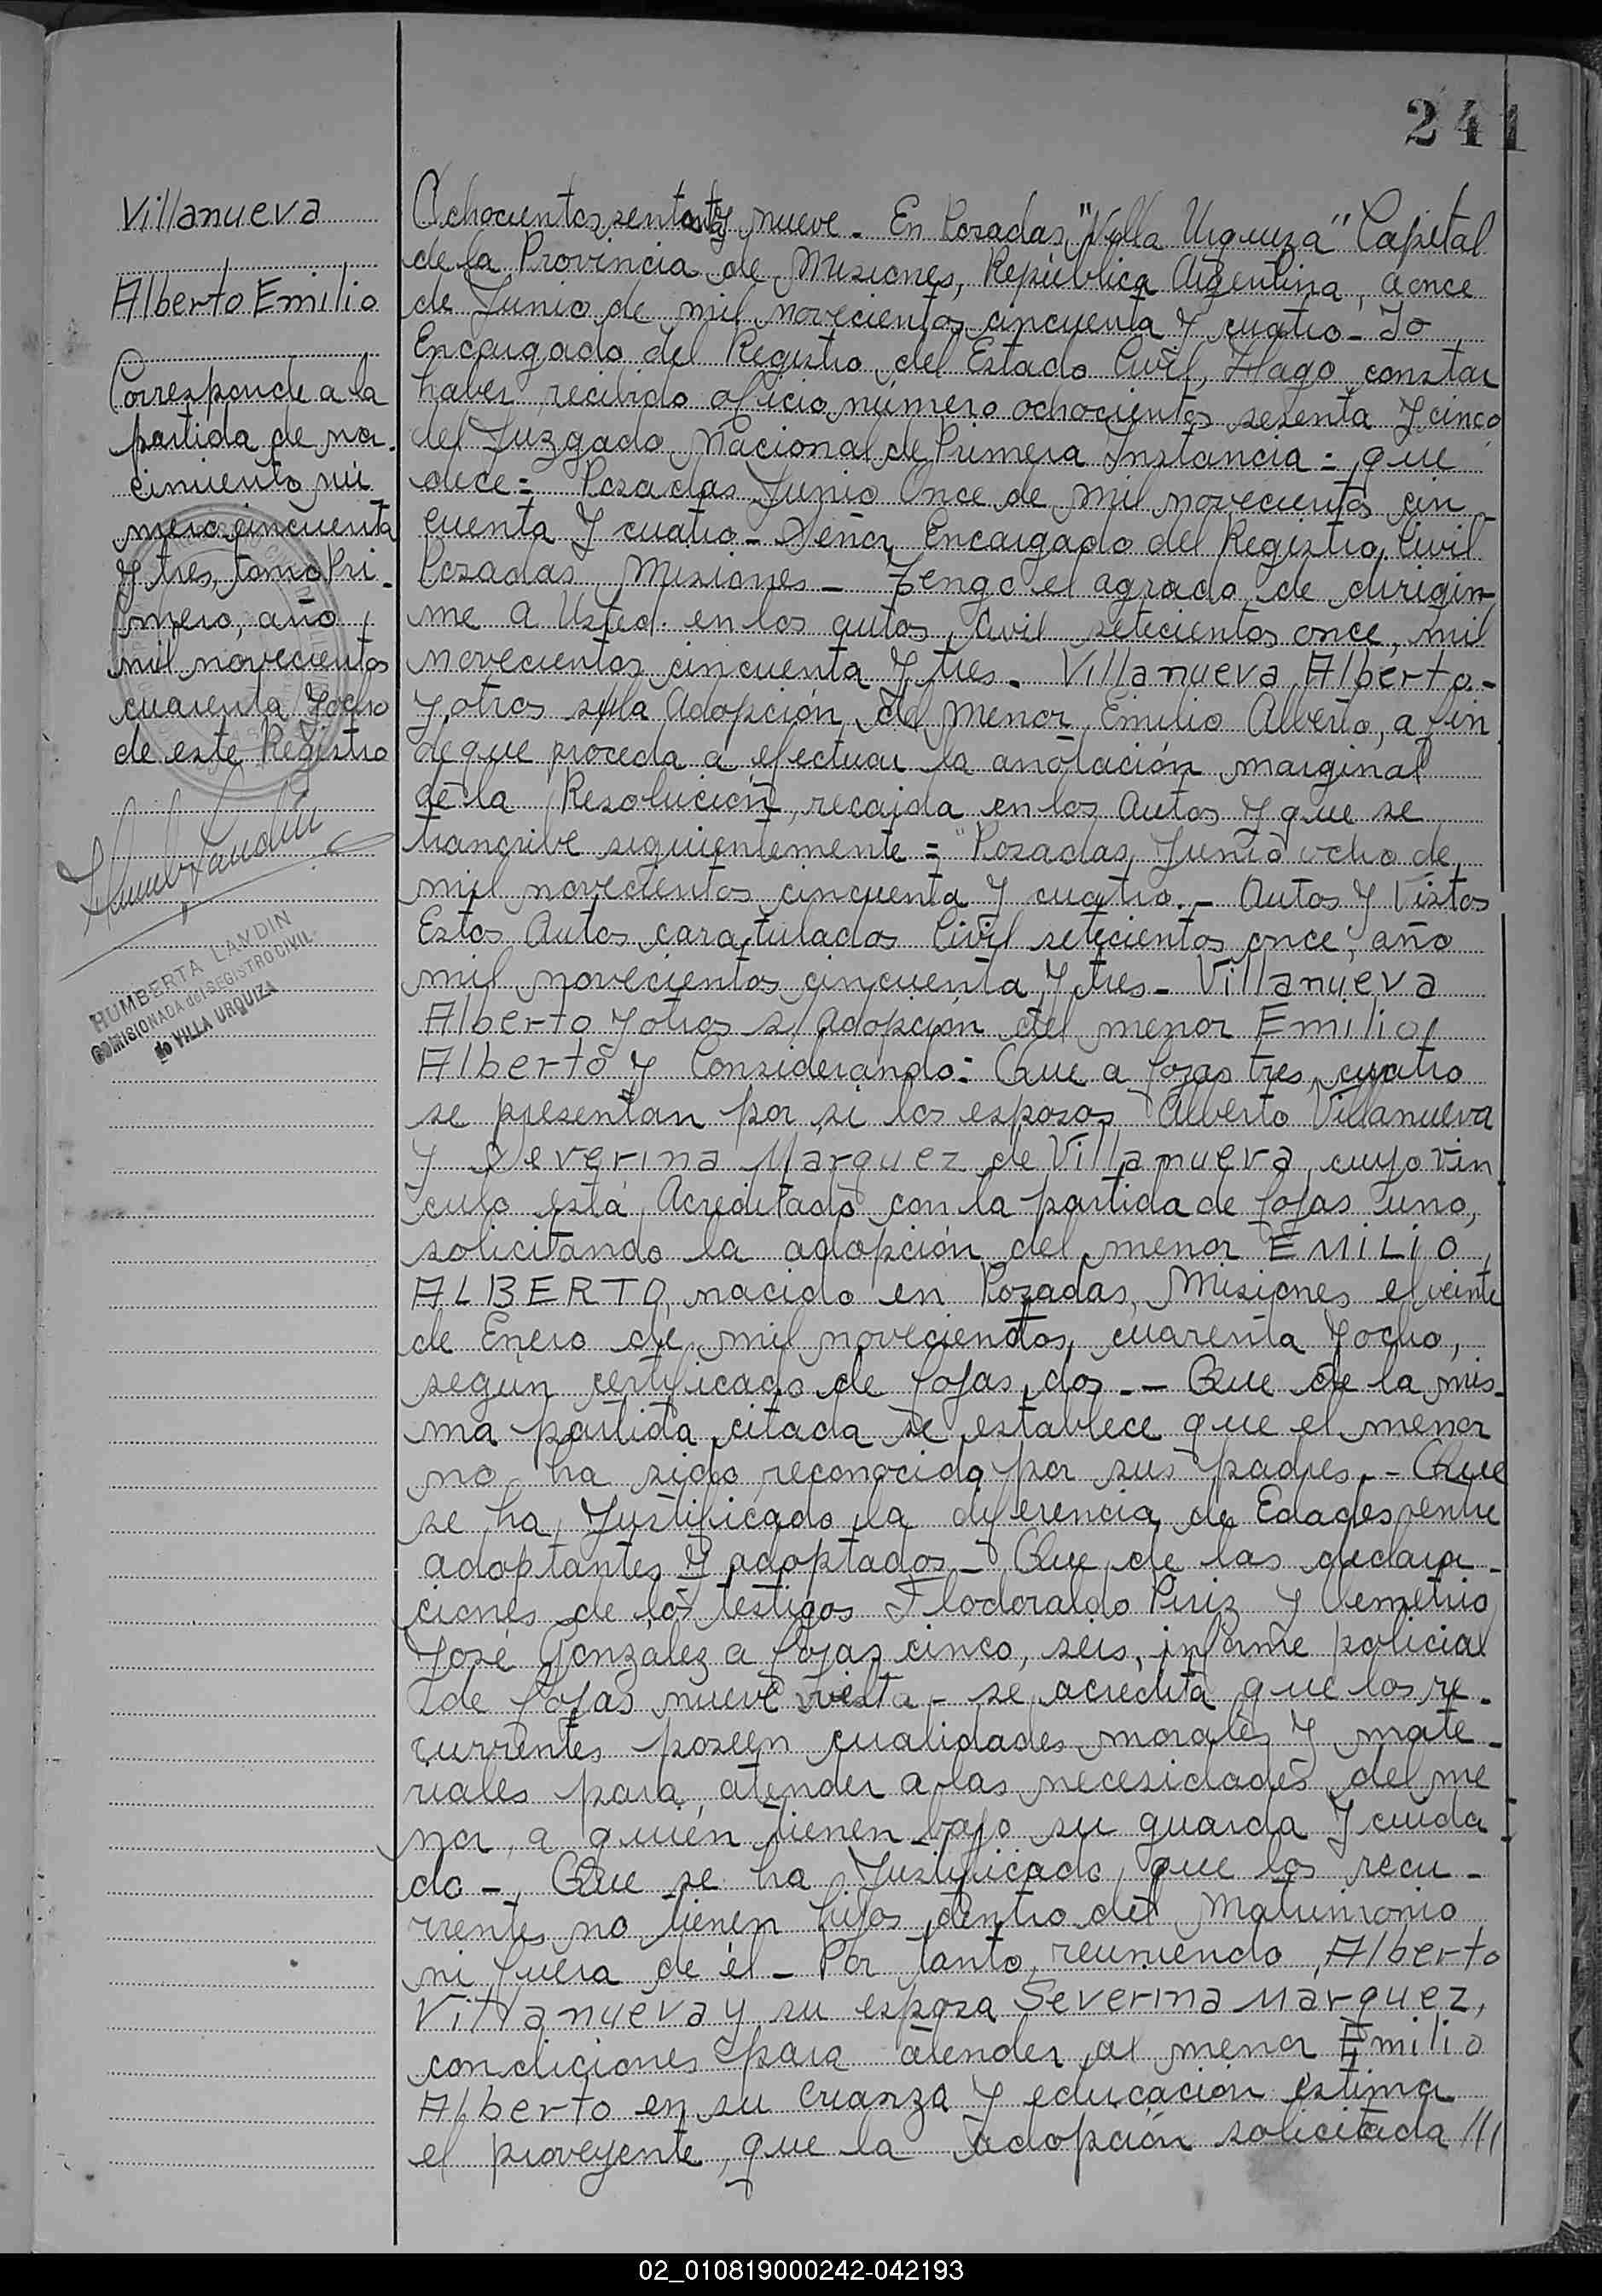 241
Villanueva
Alberto Emilio
Corresponde a la
partida de na-
cimiento nú
mero cincuenta
y tres, tomo Pri-
mero, año
mil novecientos
cuarenta y ocho
de este Registro
HUMBERTA LANDIN
COMISIONADA del REGISTRO CIVIL
de VILLA URQUIZA
Ochocientos senta y nueve. En Posadas, "Villa Urquiza" Capital
de la Provincia de Misiones, República Argentina, a once
de Junio de mil novecientos cincuenta y cuatro - Yo
Encargado del Registro del Estado Civil, Hago constar
haber recibido oficio número ochocientos sesenta y cinco
del Juzgado Nacional de Primera Instancia = que
dice = Posadas Junio Once de mil novecientos cin
cuenta y cuatro - Señor Encargado del Registro Civil
Posadas Misiones - Tengo el agrado de dirigir
me a Usted en los autos, Civil setecientos once, mil
novecientos cincuenta y tres. Villanueva Alberto -
y otros s/la Adopción del Menor Emilio Alberto, a fin
de que proceda a efectuar la anotación marginal
de la Resolución, recaida en los Autos y que se
transcribe siguientemente = "Posadas, Junio ocho de
mil novecientos cincuenta y cuatro. - Autos y Vistos
Estos Autos caratulados Civil setecientos once, año
mil novecientos cincuenta y tres - Villanueva
Alberto y otros s/ adopción del menor Emilio
Alberto y Considerando: Que a fojas tres, cuatro
se presentan por si los esposos Alberto Villanueva
y Severina Marquez de Villanueva, cuyo vin
culo está Acreditado con la partida de fojas uno,
solicitando la adopción del menor EMILIO
ALBERTO, nacido en Posadas, Misiones el veinte
de Enero de mil novecientos, cuarenta y ocho,
segun certificado de fojas dos. - Que de la mis-
ma partida citada se establece que el menor
no ha sido reconocido por sus padres. - Que
se ha Justificado la diferencia de Edades entre
adoptantes y adoptados - Que de las declara-
ciones de los testigos Flodoraldo Piriz y Demetrio
José Gonzalez a fojas cinco, seis, informe policial
de fojas nueve vuelta - se acredita que los re-
currentes poseen cualidades morales y mate-
riales para atender a las necesidades del me
nor, a quién tienen bajo su guarda y cuida
do -, Que se ha Justificado que los recu-
rrentes no tienen hijos dentro del Matrimonio
ni fuera de él - Por tanto, reuniendo Alberto
Villanueva y su esposa Severina Marquez,
condiciones para atender al menor Emilio
Alberto en su crianza y educación estima
el proveyente, que la adopción solicitada ///
02_010819000242-042193